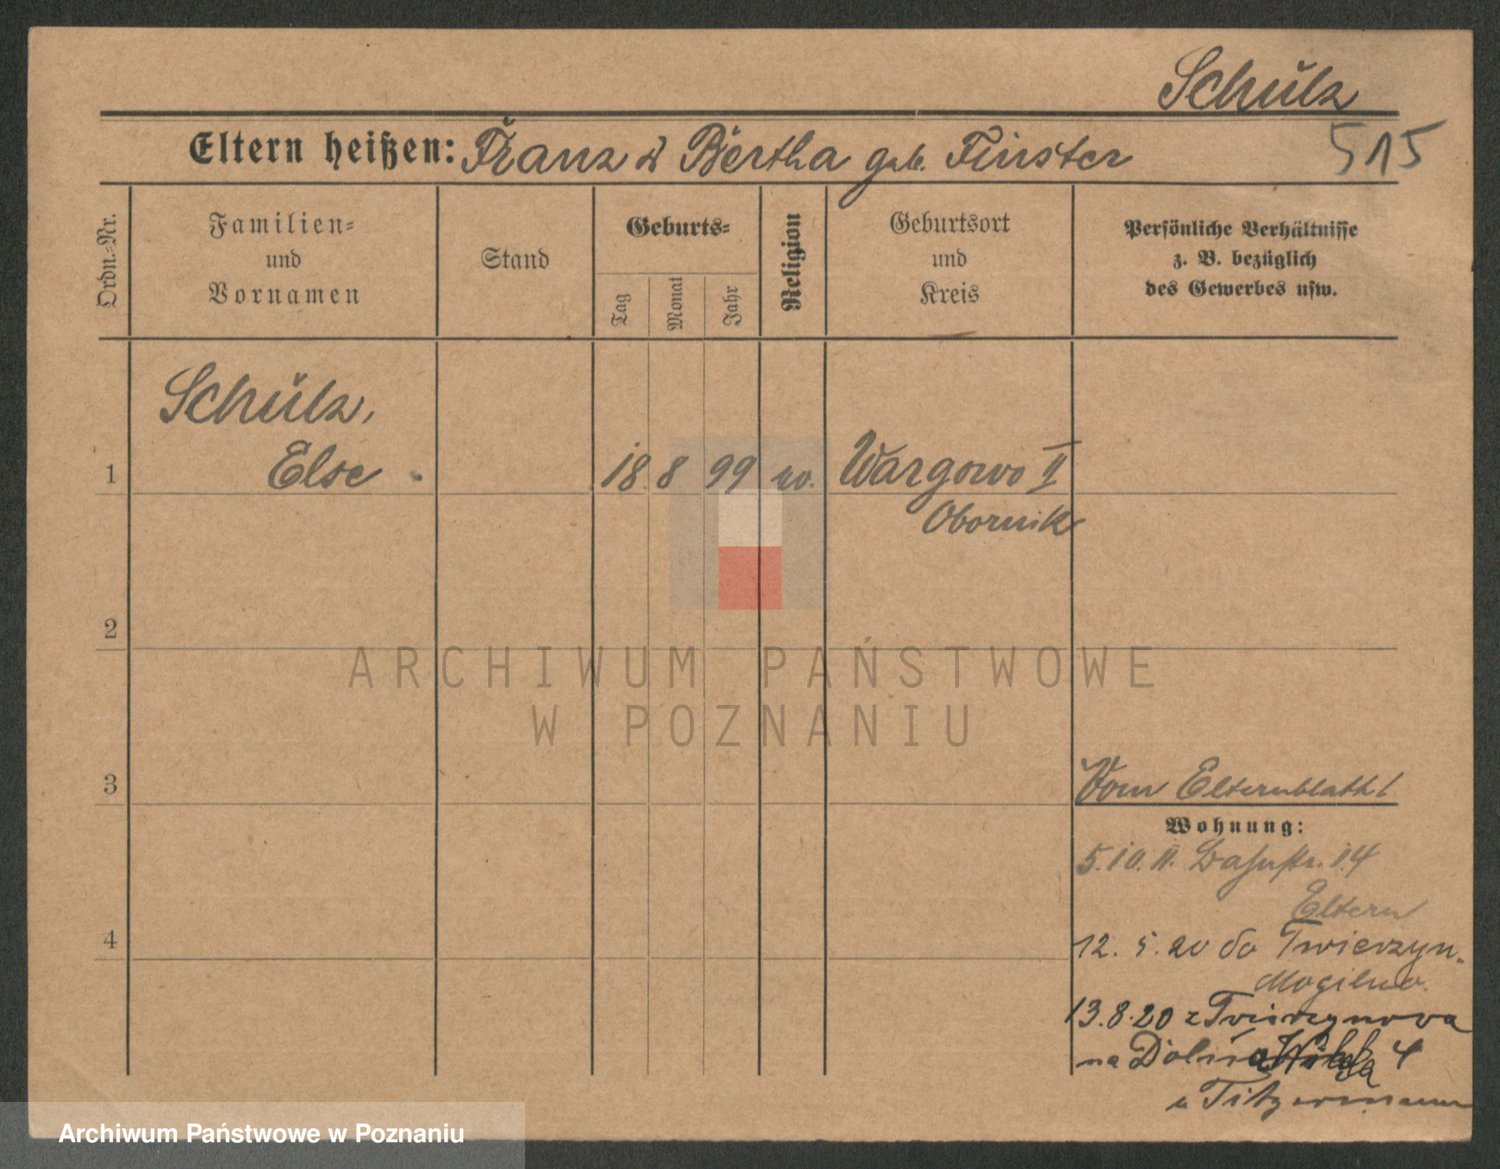 Schulz
515
Eltern heißen: Franz & Bertha geb. Finster
Ordn.=Nr.
Familien=
und
Vornamen
Stand
Geburts=
Tag
Monat
Jahr
Religion
Geburtsort
und
Kreis
Persönliche Verhältnisse
z. B. bezüglich
des Gewerbes usw.
Schulz,
1 Else 18 8 99 ev. Wargowo II
Obornik
2
ARCHIWUM PAŃSTWOWE
W POZNANIU
3
Vom Elternblatt!
Wohnung:
5.10.11. 14
Eltern
4
12. 5. 20 do Twierzyn.
Mogilno.
13.8.20 z
na 4
u
Archiwum Państwowe w Poznaniu